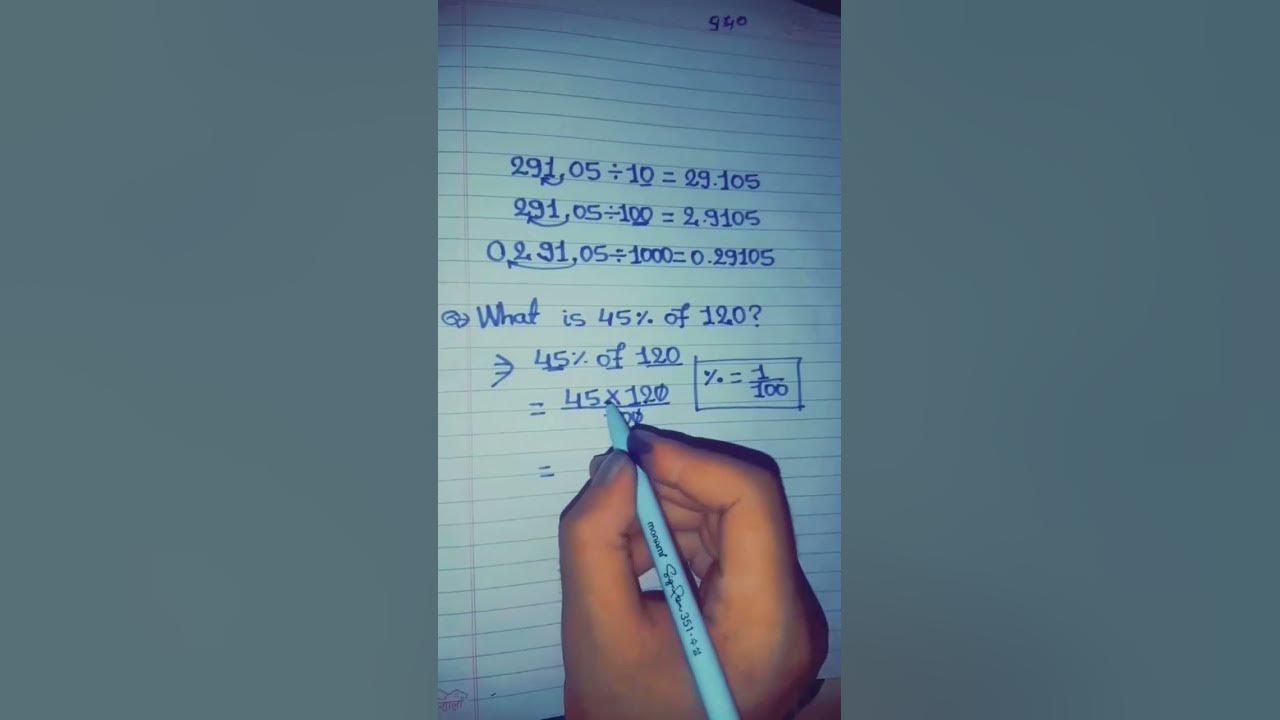 291,05÷10 = 29.105
291,05÷100 = 2.9105
0,291,05÷1000=0.29105
What is 45% of 120?
⇒ 45% of 120
% = 1/100
= 45×120
=
monami
351